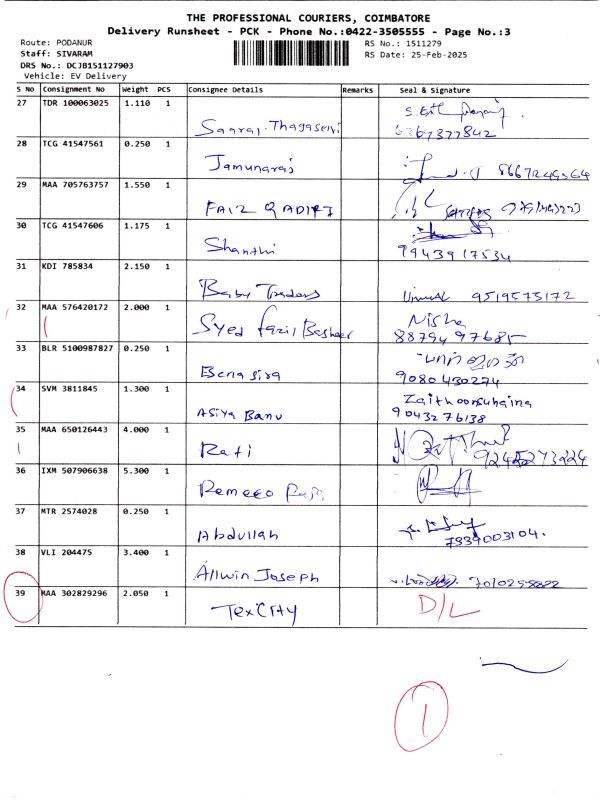 THE PROFESSIONAL COURIERS, COIMBATORE
Delivery Runsheet - PCK - Phone No.:0422-3505555 - Page No.:3
Route: PODANUR
Staff: SIVARAM
DRS No.: DCJB151127903
Vehicle: EV Delivery
RS No.: 1511279
RS Date: 25-Feb-2025
S No Consignment No Weight PCS Consignee Details Remarks Seal & Signature
27 TDR 100063025 1.110 1
28 TCG 41547561 0.250 1
Jamunaraj
29 MAA 705763757 1.550 1
FAIZ QADIRI
30 TCG 41547606 1.175 1
Shanthi
9943917534
31 KDI 785834 2.150 1
Baby Traders 9519575172
32 MAA 576420172 2.000 1
Syed Fazil Basheer
Nisha
8879497685
33 BLR 5100987827 0.250 1
Benasira
9080430274
34 SVM 3811845 1.300 1
Asiya Banu
Zaithoonsuhaina
9043276138
35 MAA 650126443 4.000 1
Rafi
36 IXM 507906638 5.300 1
37 MTR 2574028 0.250 1
Abdullah
7339003104.
38 VLI 204475 3.400 1
Allwin Joseph
39 MAA 302829296 2.050 1
TexCity D/L
1